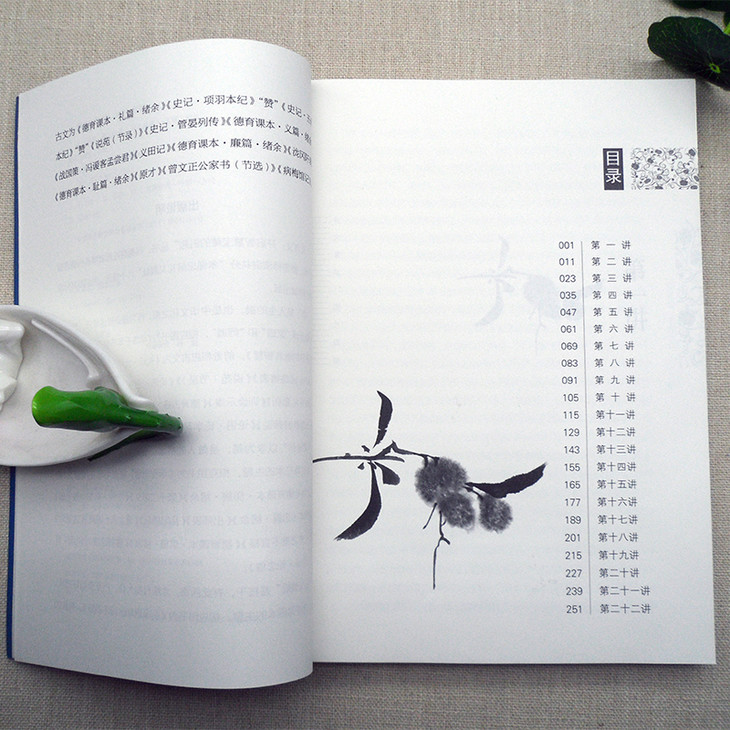 古文为《德育课本·礼篇·绪余》《史记·项羽本纪》“赞”《史记·
本纪》“赞”《说苑（节录）》《史记·管晏列传》《德育课本·义篇·绪
《战国策·冯谖客孟尝君》《义田记》《德育课本·廉篇·绪余》《
《德育课本·耻篇·绪余》《原才》《曾文正公家书（节选）》《病梅馆记
目录
001 第一讲
011 第二讲
023 第三讲
035 第四讲
047 第五讲
061 第六讲
069 第七讲
083 第八讲
091 第九讲
105 第十讲
115 第十一讲
129 第十二讲
143 第十三讲
155 第十四讲
165 第十五讲
177 第十六讲
189 第十七讲
201 第十八讲
215 第十九讲
227 第二十讲
239 第二十一讲
251 第二十二讲